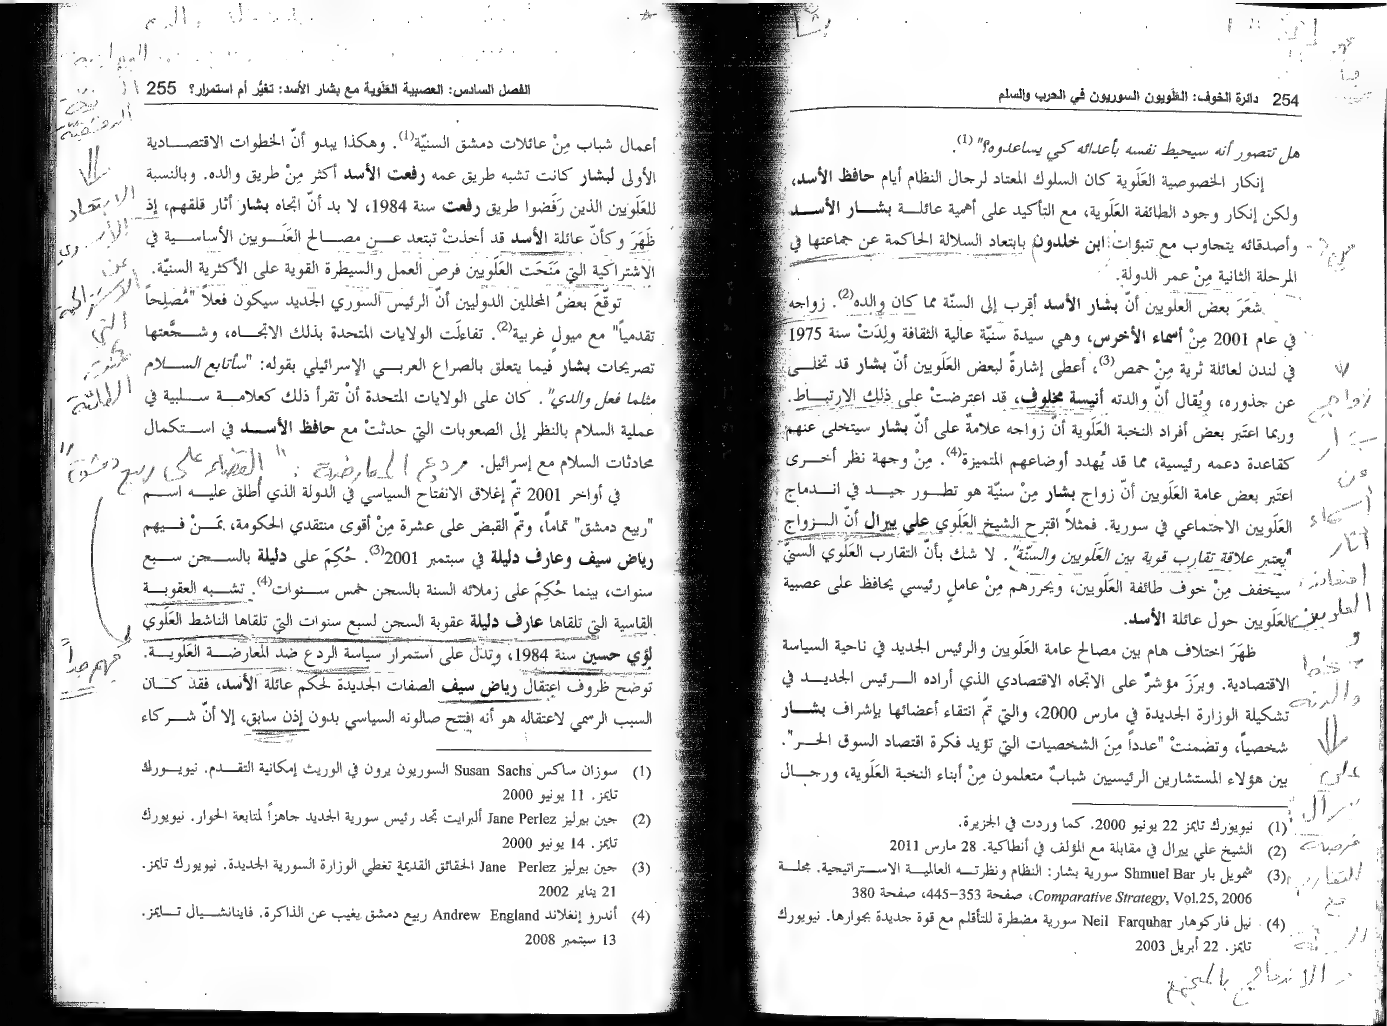 254 دائرة الخوف: العَلَويون السوريون في الحرب والسلم
هل تتصور أنه سيحيط نفسه بأعدائه كي يساعدوه؟" (1).
إنكار الخصوصية العَلَوية كان السلوك المعتاد لرجال النظام أيام حافظ الأسد،
ولكن إنكار وجود الطائفة العَلَوية، مع التأكيد على أهمية عائلة بشار الأسد
وأصدقائه يتجاوب مع تنبؤات ابن خلدون بابتعاد السلالة الحاكمة عن جماعتها في
المرحلة الثانية مِنْ عمر الدولة.
شعَرَ بعض العلويين أنّ بشار الأسد أقرب إلى السنّة مما كان والده(2). زواجه
في عام 2001 مِنْ أسماء الأخرس، وهي سيدة سنيّة عالية الثقافة ولِدَتْ سنة 1975
في لندن لعائلة ثرية مِنْ حمص(3)، أعطى إشارةً لبعض العَلَويين أنّ بشار قد تخلى
عن جذوره، ويُقال أنّ والدته أنيسة مخلوف، قد اعترضتْ على ذلك الارتباط.
وربما اعتَبر بعض أفراد النخبة العَلَوية أن زواجه علامةٌ على أنّ بشار سيتخلى عنهم
كقاعدة دعمه رئيسية، مما قد يُهدد أوضاعهم المتميزة(4). مِنْ وجهة نظر أخرى
اعتَبر بعض عامة العَلَويين أنّ زواج بشار مِنْ سنيّة هو تطور جيد في اندماج
العَلَويين الاجتماعي في سورية. فمثلاً اقترح الشيخ العَلَوي علي ييرال أنّ الزواج
"يُعتبر علاقة تقارب قوية بين العَلَويين والسنّة". لا شك بأنّ التقارب العَلَوي السنيّ
سيخفف مِنْ خوف طائفة العَلَويين، ويحررهم مِنْ عاملٍ رئيسي يحافظ على عصبية
العَلَويين حول عائلة الأسد.
ظهَرَ اختلاف هام بين مصالح عامة العَلَويين والرئيس الجديد في ناحية السياسة
الاقتصادية. وبرَزَ مؤشرٌ على الاتجاه الاقتصادي الذي أراده الرئيس الجديد في
تشكيلة الوزارة الجديدة في مارس 2000، والتي تمّ انتقاء أعضائها بإشراف بشار
شخصياً، وتضمنتْ "عدداً مِنَ الشخصيات التي تؤيد فكرة اقتصاد السوق الحر".
بين هؤلاء المستشارين الرئيسيين شبابٌ متعلمون مِنْ أبناء النخبة العَلَوية، ورجال
(1) نيويورك تايمز 22 يونيو 2000. كما وردت في الجزيرة.
(2) الشيخ علي ييرال في مقابلة مع المؤلف في أنطاكية. 28 مارس 2011
(3) شمويل بار Shmuel Bar سورية بشار: النظام ونظرته العالمية الاستراتيجية. مجلة
Comparative Strategy, Vol.25, 2006، صفحة 353-445، صفحة 380
(4) نيل فاركوهار Neil Farquhar سورية مضطرة للتأقلم مع قوة جديدة بجوارها. نيويورك
تايمز. 22 أبريل 2003
زواج
بشار
من
أسماء
أثار
العلويين
و
على
التقارب
مع
الاندماج بالمجتمع
الفصل السادس: العصبية العَلَوية مع بشار الأسد: تغيُّر أم استمرار؟ 255
أعمال شباب مِنْ عائلات دمشق السنيّة(1). وهكذا يبدو أنّ الخطوات الاقتصادية
الأولى لبشار كانت تشبه طريق عمه رفعت الأسد أكثر مِنْ طريق والده. وبالنسبة
للعَلَويين الذين رَفَضوا طريق رفعت سنة 1984، لا بد أنّ اتجاه بشار أثار قلقهم، إذ
ظَهَرَ وكأنّ عائلة الأسد قد أخذتْ تبتعد عن مصالح العَلَويين الأساسية في
الاشتراكية التي مَنَحَت العَلَويين فرص العمل والسيطرة القوية على الأكثرية السنيّة.
توقّعَ بعضُ المحللين الدوليين أنّ الرئيس السوري الجديد سيكون فعلاً "مُصلِحاً
تقدمياً" مع ميولٍ غربية(2). تفاءلَت الولايات المتحدة بذلك الاتجاه، وشجَّعتها
تصريحات بشار فيما يتعلق بالصراع العربي الإسرائيلي بقوله: "سأتابع السلام
مثلما فعل والدي". كان على الولايات المتحدة أنْ تقرأ ذلك كعلامة سلبية في
عملية السلام بالنظر إلى الصعوبات التي حدثتْ مع حافظ الأسد في استكمال
محادثات السلام مع إسرائيل.
ردع المعارضة. "القضاء على ربيع دمشق"
في أواخر 2001 تمّ إغلاق الانفتاح السياسي في الدولة الذي أُطلق عليه اسم
"ربيع دمشق" تماماً، وتمّ القبض على عشرة مِنْ أقوى منتقدي الحكومة، بمَنْ فيهم
رياض سيف وعارف دليلة في سبتمبر 2001(3). حُكِمَ على دليلة بالسجن سبع
سنوات، بينما حُكِمَ على زملائه السنة بالسجن خمس سنوات(4). تشبه العقوبة
القاسية التي تلقاها عارف دليلة عقوبة السجن لسبع سنوات التي تلقاها الناشط العَلَوي
لؤي حسين سنة 1984، وتدلّ على استمرار سياسة الردع ضد المعارضة العَلَوية.
توضح ظروف اعتقال رياض سيف الصفات الجديدة لحكم عائلة الأسد، فقد كان
السبب الرسمي لاعتقاله هو أنه افتتح صالونه السياسي بدون إذن سابق، إلا أنّ شركاء
(1) سوزان ساكس Susan Sachs السوريون يرون في الوريث إمكانية التقدم. نيويورك
تايمز. 11 يونيو 2000
(2) جين بيرليز Jane Perlez ألبرايت تجد رئيس سورية الجديد جاهزاً لمتابعة الحوار. نيويورك
تايمز. 14 يونيو 2000
(3) جين بيرليز Jane Perlez الحقائق القديمة تغطي الوزارة السورية الجديدة. نيويورك تايمز.
21 يناير 2002
(4) أندرو إنغلاند Andrew England ربيع دمشق يغيب عن الذاكرة. فاينانشيال تايمز.
13 سبتمبر 2008
الابتعاد
الأسدي
عن
الاشتراكية
التي
الطائفة
مهم جداً